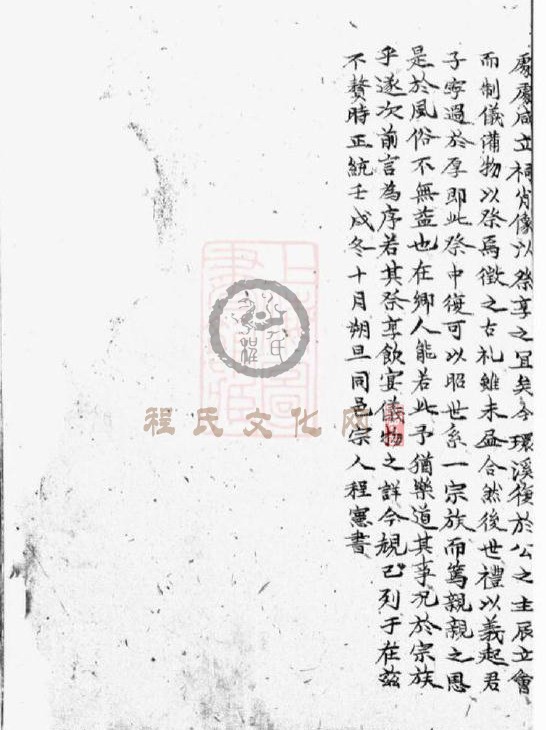 處處咸立祠肖像以祭享之冝矣今環溪復於公之生辰立會
而制儀備物以祭焉徵之古礼雖未盡合然後世禮以義起君
子寧過於厚即此祭中復可以昭世系一宗族而篤親親之恩
是於風俗不無益也在鄉人能若此予猶樂道其事况於宗族
乎遂次前言為序若其祭享飲宴儀物之詳今規已列于在茲
不贅時正統壬戌冬十月朔旦同邑宗人程憲書
程氏文化网